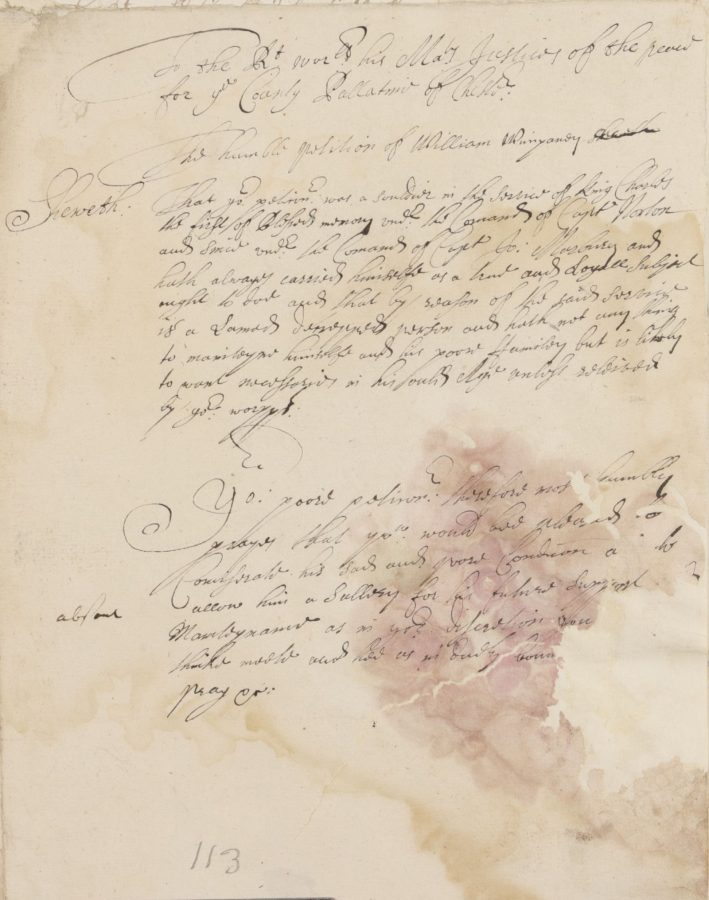 To the Rt worpll his Mats Justices of the peace
for ye County Pallatine of Chestr
The humble petition of William Winpaney
Sheweth: That yor petionr was a souldier in the service of King Charles
the first of blessed memory undr the Comand of Capt Norton
and since undr the Comand of Capt Jo: and
hath always carried himselfe as a true and Loyall subject
ought to doe and that by reason of the said service
is a Lamed decrepped person and hath not any thing
to manteyne himselfe and his poore ffamiley but is likely
to want necessaries in his ould Age unless releived
by yor worpps:
Yor: poore petionr: therefore most humbly
prayes that yor worpps would bee pleased to
Comiserate his sad and poore Condicion a to
allow him a Sallery for his future support
Manteynance as in yor discretion you
absent
thinke meete and hee as in duty boun
pray &c:
113